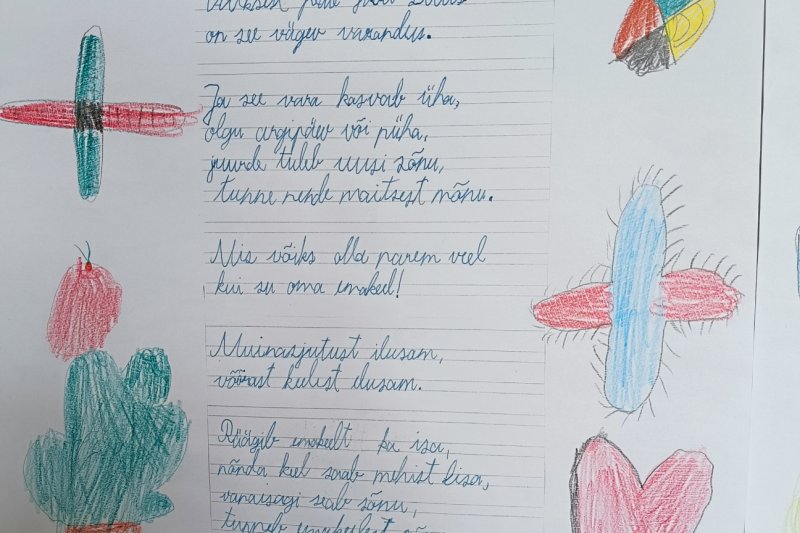 on see vägev varandus.
Ja see vara kasvab üha,
olgu argipäev või püha,
juurde tuleb uusi sõnu,
tunne nende maitsest mõnu.
Mis võiks olla parem veel
kui su oma emakeel!
Muinasjutust ilusam,
võõrast keelest ilusam.
Räägib emakeelt ka isa,
nõnda keel saab mehist lisa,
vanaisagi seab sõnu,
tunneb emakeelest mõnu